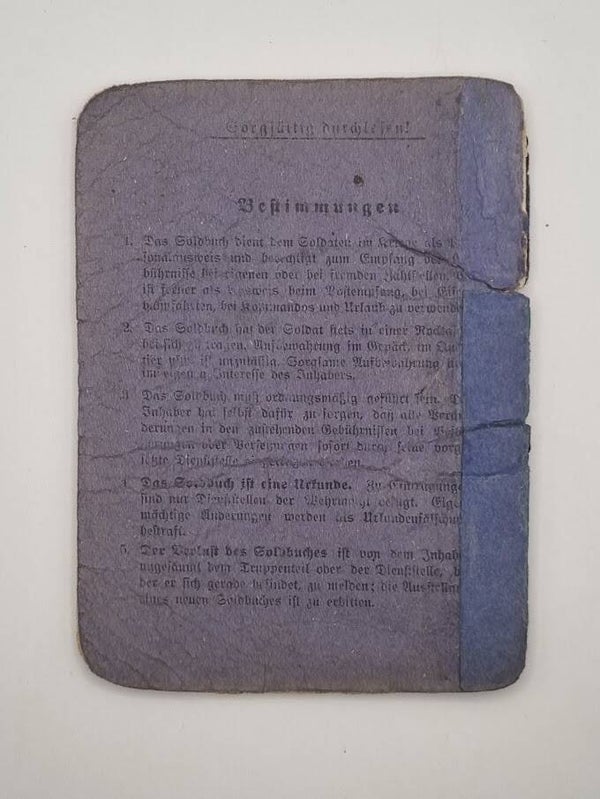 Sorgfältig durchlesen!
Bestimmungen
1. Das Soldbuch dient dem Soldaten im Kriege als
sonalausweis und berechtigt zum Empfang der
bührnisse bei eigenen oder bei fremden Zahlstellen.
ist ferner als Ausweis beim Postempfang, bei
bahnfahrten, bei Kommandos und Urlaub zu verwende
2. Das Soldbuch hat der Soldat stets in einer Rock
bei sich zu tragen. Aufbewahrung im Gepäck, im
tier usw. ist unzulässig. Sorgsame Aufbewahrung
im eigenen Interesse des Inhabers.
3 Das Soldbuch muß ordnungsmäßig geführt sein.
Inhaber hat selbst dafür zu sorgen, daß alle
derungen in den zustehenden Gebührnissen bei
oder Versetzungen sofort durch seine vorg
setzte Dienststelle eingetragen werden.
4 Das Soldbuch ist eine Urkunde. Zu Eintragunge
sind nur Dienststellen der Wehrmacht befugt. Eige
mächtige Änderungen werden als Urkundenfälschu
bestraft.
5. Der Verlust des Soldbuches ist von dem Inhab
ungesäumt dem Truppenteil oder der Dienststelle, b
der er sich gerade befindet, zu melden; die Ausstellun
eines neuen Soldbuches ist zu erbitten.